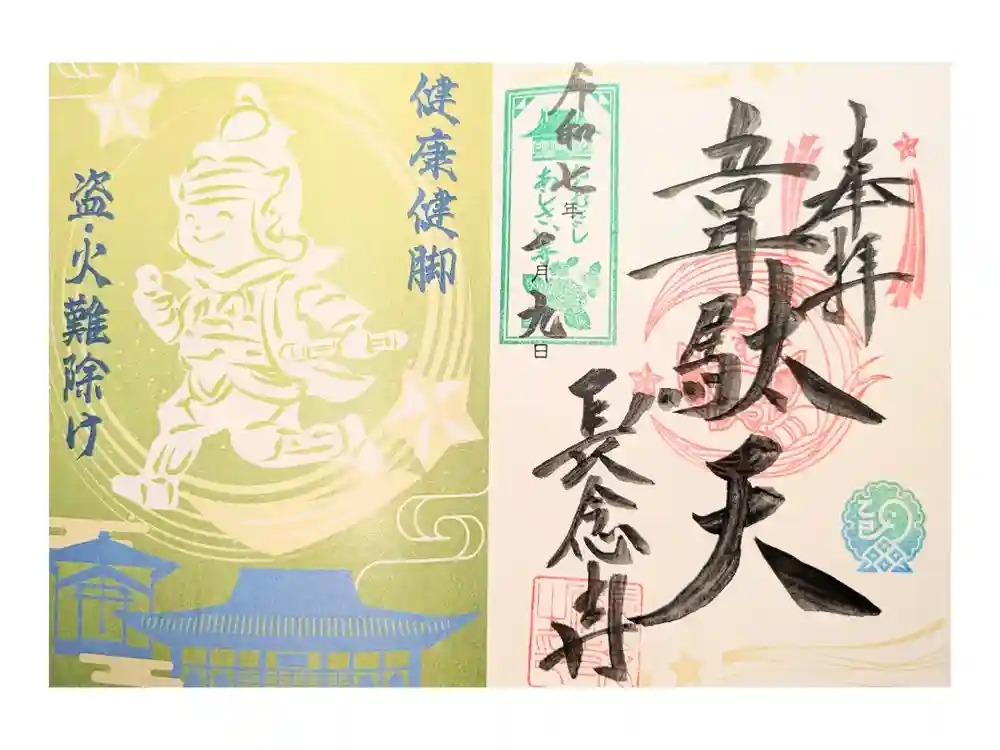 奉拝
韋駄天
令和七年月九日
むさし
あじさい寺
長念寺
乙巳
健康健脚
盗・火難除け